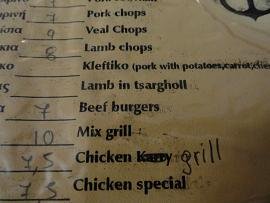 ρινή 7 Pork chops
ίσια 9 Veal Chops
κια 8 Lamb chops
κο Kleftiko (pork with potatoes,carrot,
ας Lamb in tsargholl
α 7 Beef burgers
10 Mix grill
7,5 Chicken grill
7,5 Chicken special